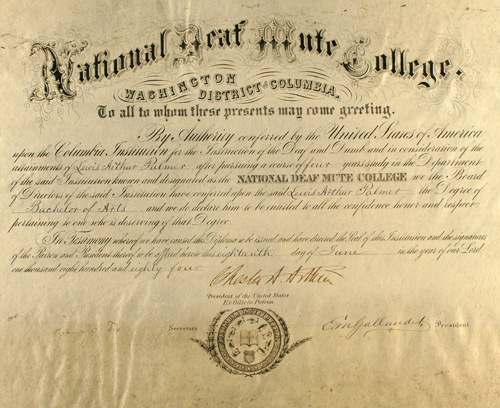 National Deaf Mute College.
WASHINGTON
DISTRICT OF COLUMBIA.
To all to whom these presents may come greeting.
By Authority conferred by the United States of America
upon the Columbia Institution for the Instruction of the Deaf and Dumb and in consideration of the
attainments of Lewis Arthur Palmer after pursuing a course of four years study in the Department
of the said Institution known and designated as the NATIONAL DEAF MUTE COLLEGE we the Board
of Directors of the said Institution have conferred upon the said Lewis Arthur Palmer the Degree of
Bachelor of Arts and we do declare him to be entitled to all the confidence honor and respect
pertaining to one who is deserving of that Degree.
In Testimony whereof we have caused this Diploma to be issued and have directed the Seal of this Institution and the signatures
of the Patron and President thereof to be affixed hereto this eighteenth day of June in the year of our Lord
one thousand eight hundred and eighty four
Chester A. Arthur
President of the United States
Ex Officio Patron.
Secretary
E M Gallaudet President